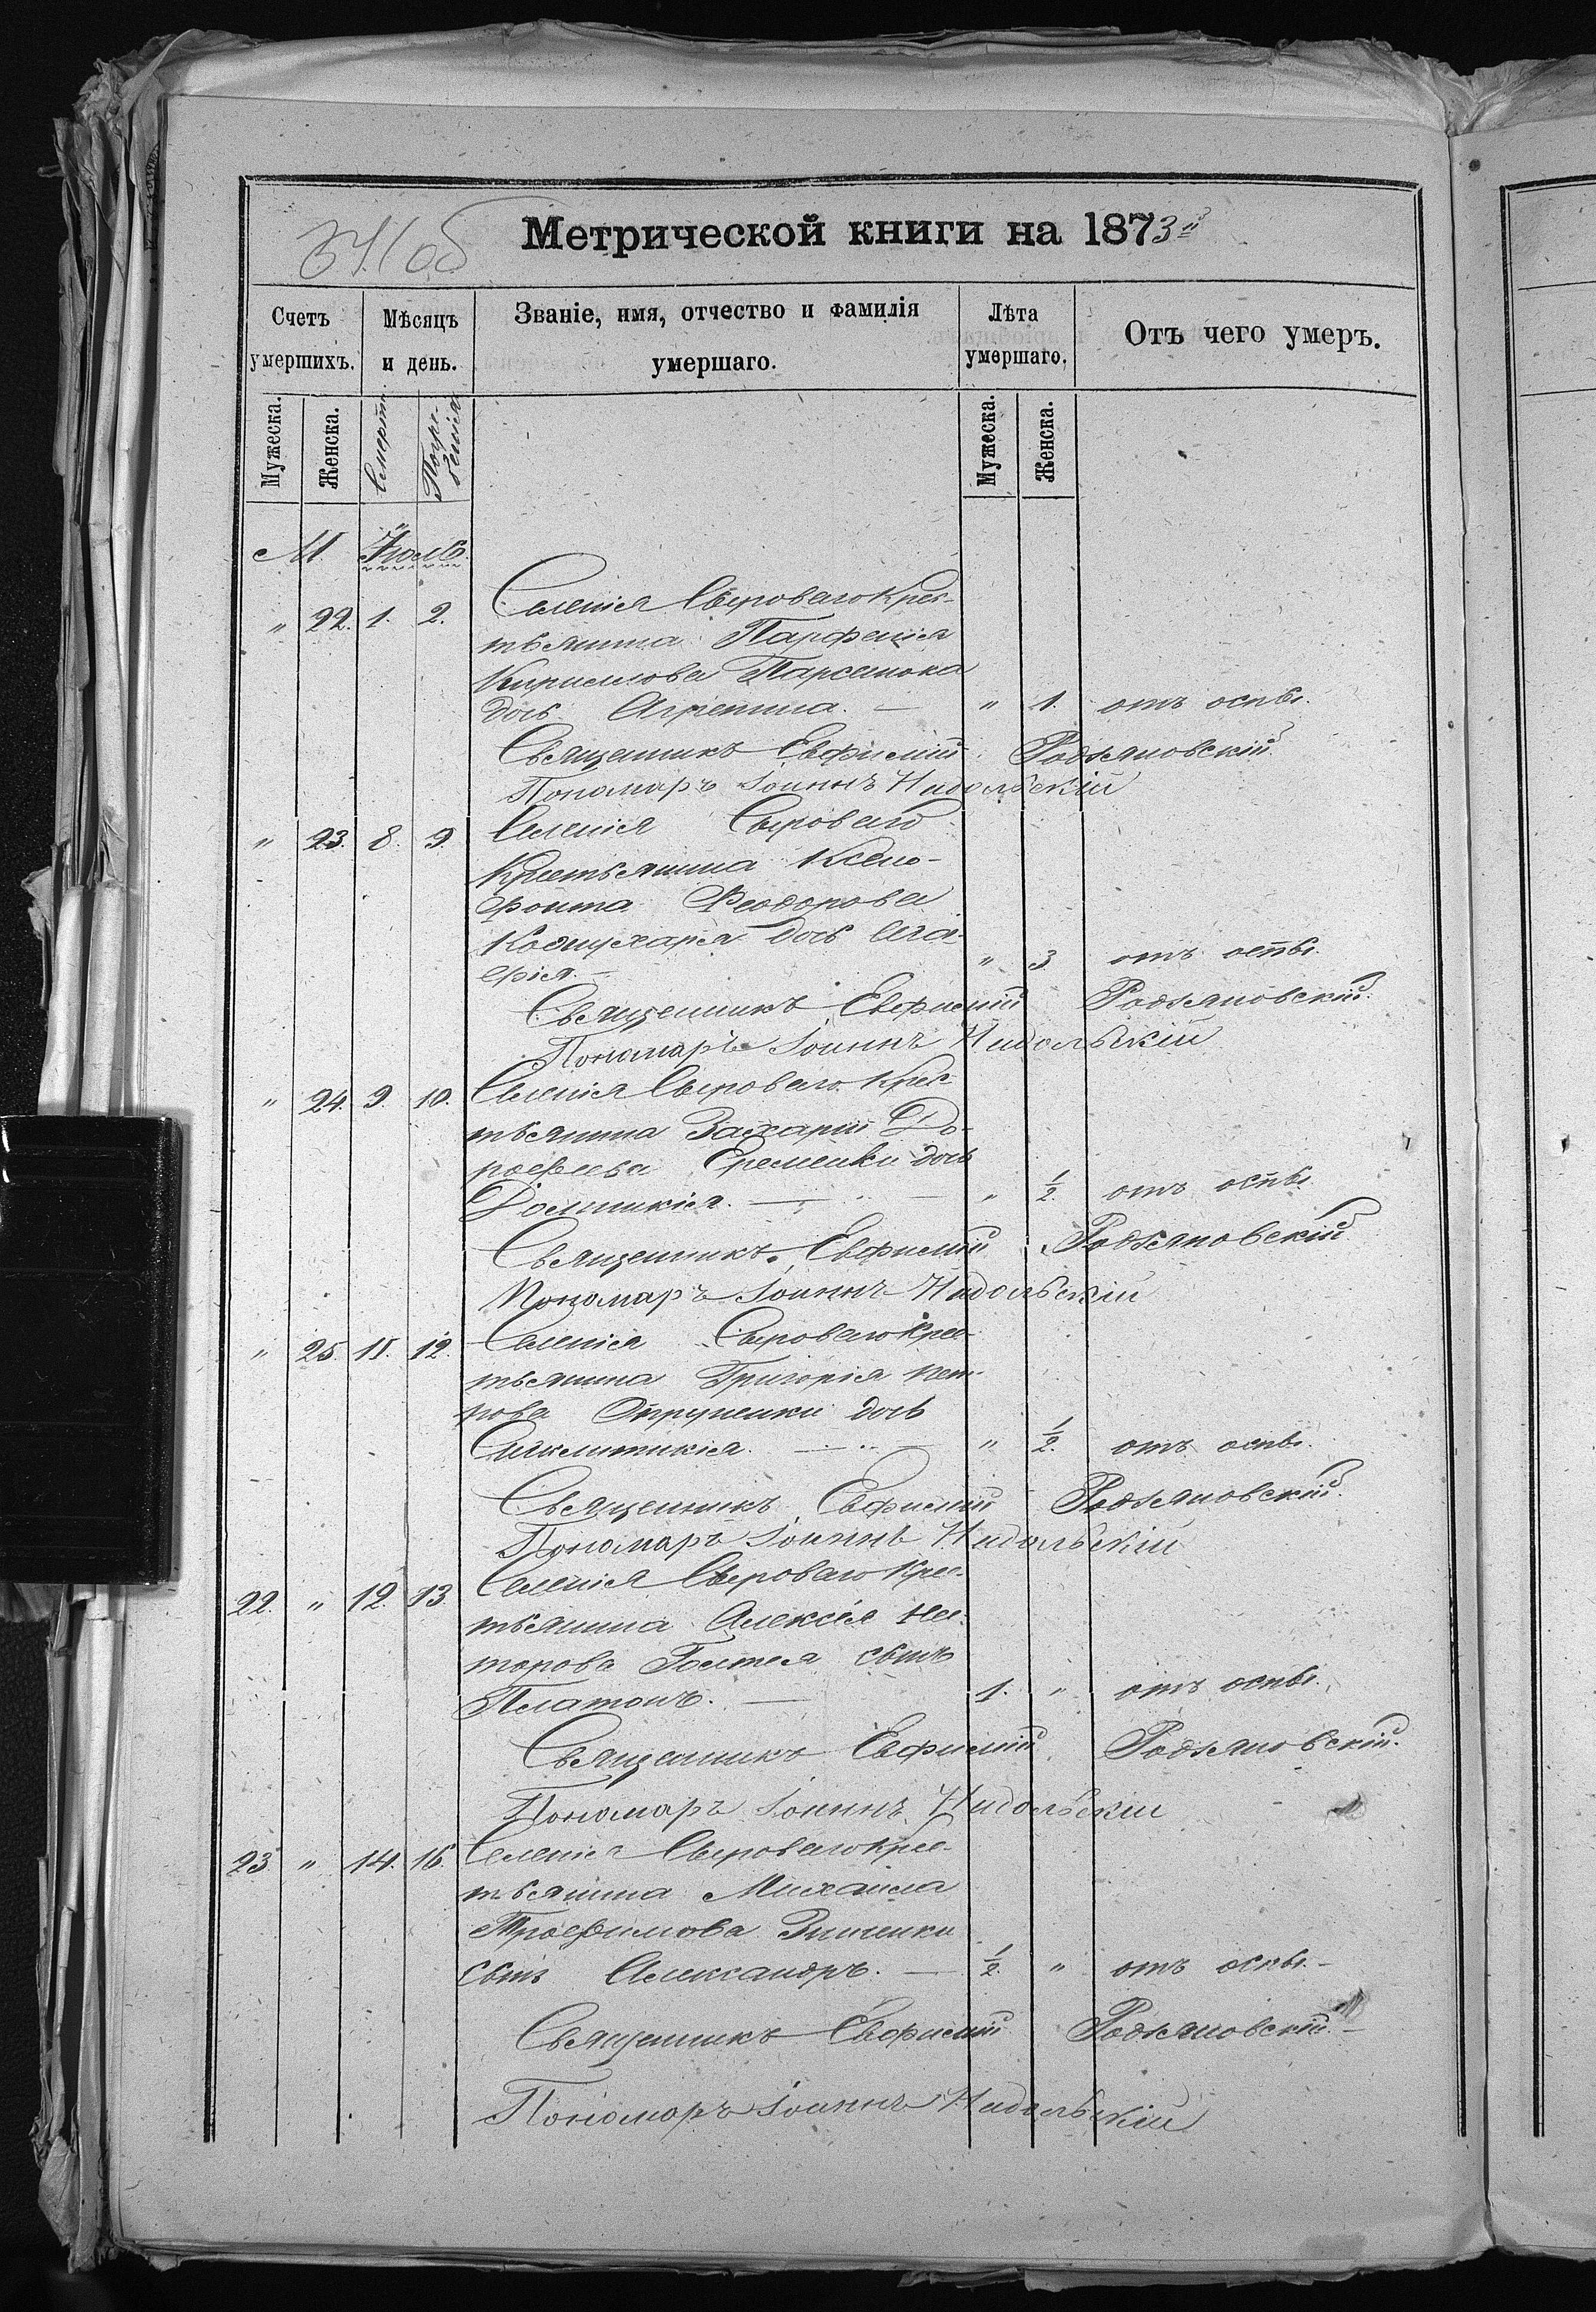 Метрической книги на 1873й
Счетъ умершихъ.
Мѣсяцъ и день.
Званіе, имя, отчество и фамилія умершаго.
Лѣта умершаго.
Отъ чего умеръ.
Мужеска.
Женска.
Смерти
Погребенія
Мужеска.
Женска.
М. Іюль.
" 22. 1. 2. Селенія Сыроваго Крес-
тьянина Парфенія
Кириллова
дочь Агрепина. — " 1. отъ оспы.
Священникъ Евфимій Родзяновскій.
Пономаръ Іоаннъ Надольскій
" 23. 8. 9. Селенія Сыроваго
Крестьянина Ксено-
фонта Феодорова
дочь
" 3 отъ оспы.
Священникъ Евфимій Родзяновскій.
Пономаръ Іоаннъ Надольскій
" 24. 9. 10. Селенія Сыроваго Крес-
тьянина Захарія До-
рофеева Еременки дочь
Домникія. — " 1/2. отъ оспы
Священникъ Евфимій Родзяновскій
Пономаръ Іоаннъ Надольскій
" 25. 11. 12. Селенія Сыроваго Крес-
тьянина Григорія Пет-
рова дочь
Синклитикія. — " 1/2. отъ оспы.
Священникъ Евфимій Родзяновскій.
Пономаръ Іоаннъ Надольскій
22. " 12. 13. Селенія Сыроваго Крес-
тьянина Алексѣя Нес-
торова сынъ
Платонъ. — 1. " отъ оспы.
Священникъ Евфимій Родзяновскій.
Пономаръ Іоаннъ Надольскій
23 " 14. 16. Селенія Сыроваго Крес-
тьянина Михаила
Трофимова Зинченки
сынъ Александръ. — 1/2. " отъ оспы. —
Священникъ Евфимій Родзяновскій. —
Пономоръ Іоаннъ Надольскій